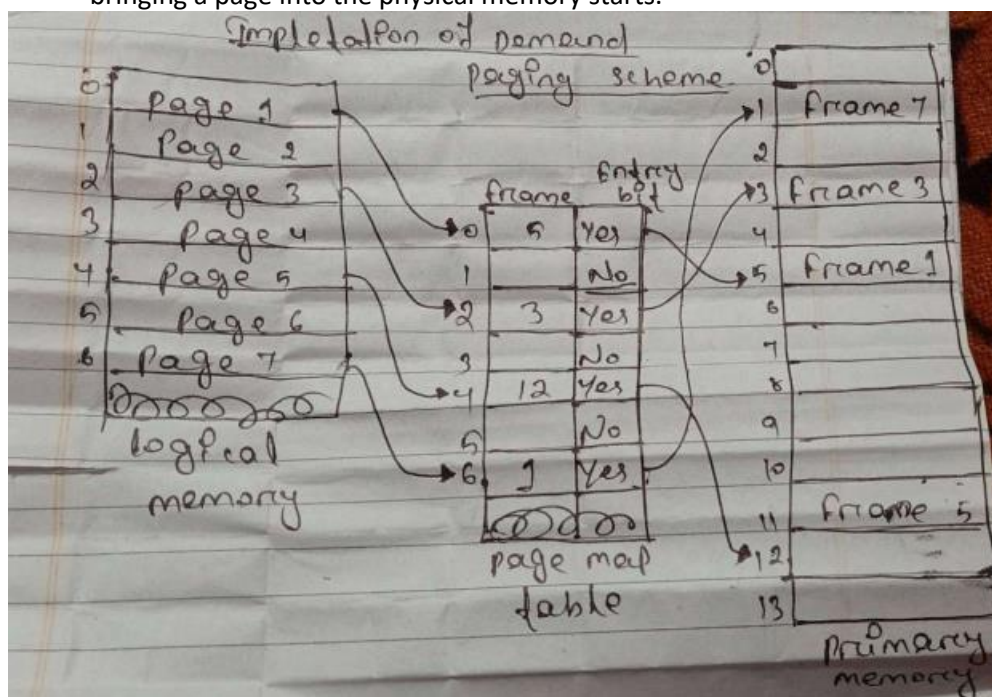 bringing a page into the physical memory starts.
Impletation of Demand
paging scheme
0 Page 1
1 Page 2
2 Page 3
3 Page 4
4 Page 5
5 Page 6
6 Page 7
logical
memory
frame Entry
bit
0 5 Yes
1 No
2 3 Yes
3 No
4 12 Yes
5 No
6 1 Yes
page map
table
0
1 frame 7
2
3 frame 3
4
5 frame 1
6
7
8
9
10
11 frame 5
12
13
Primary
memory